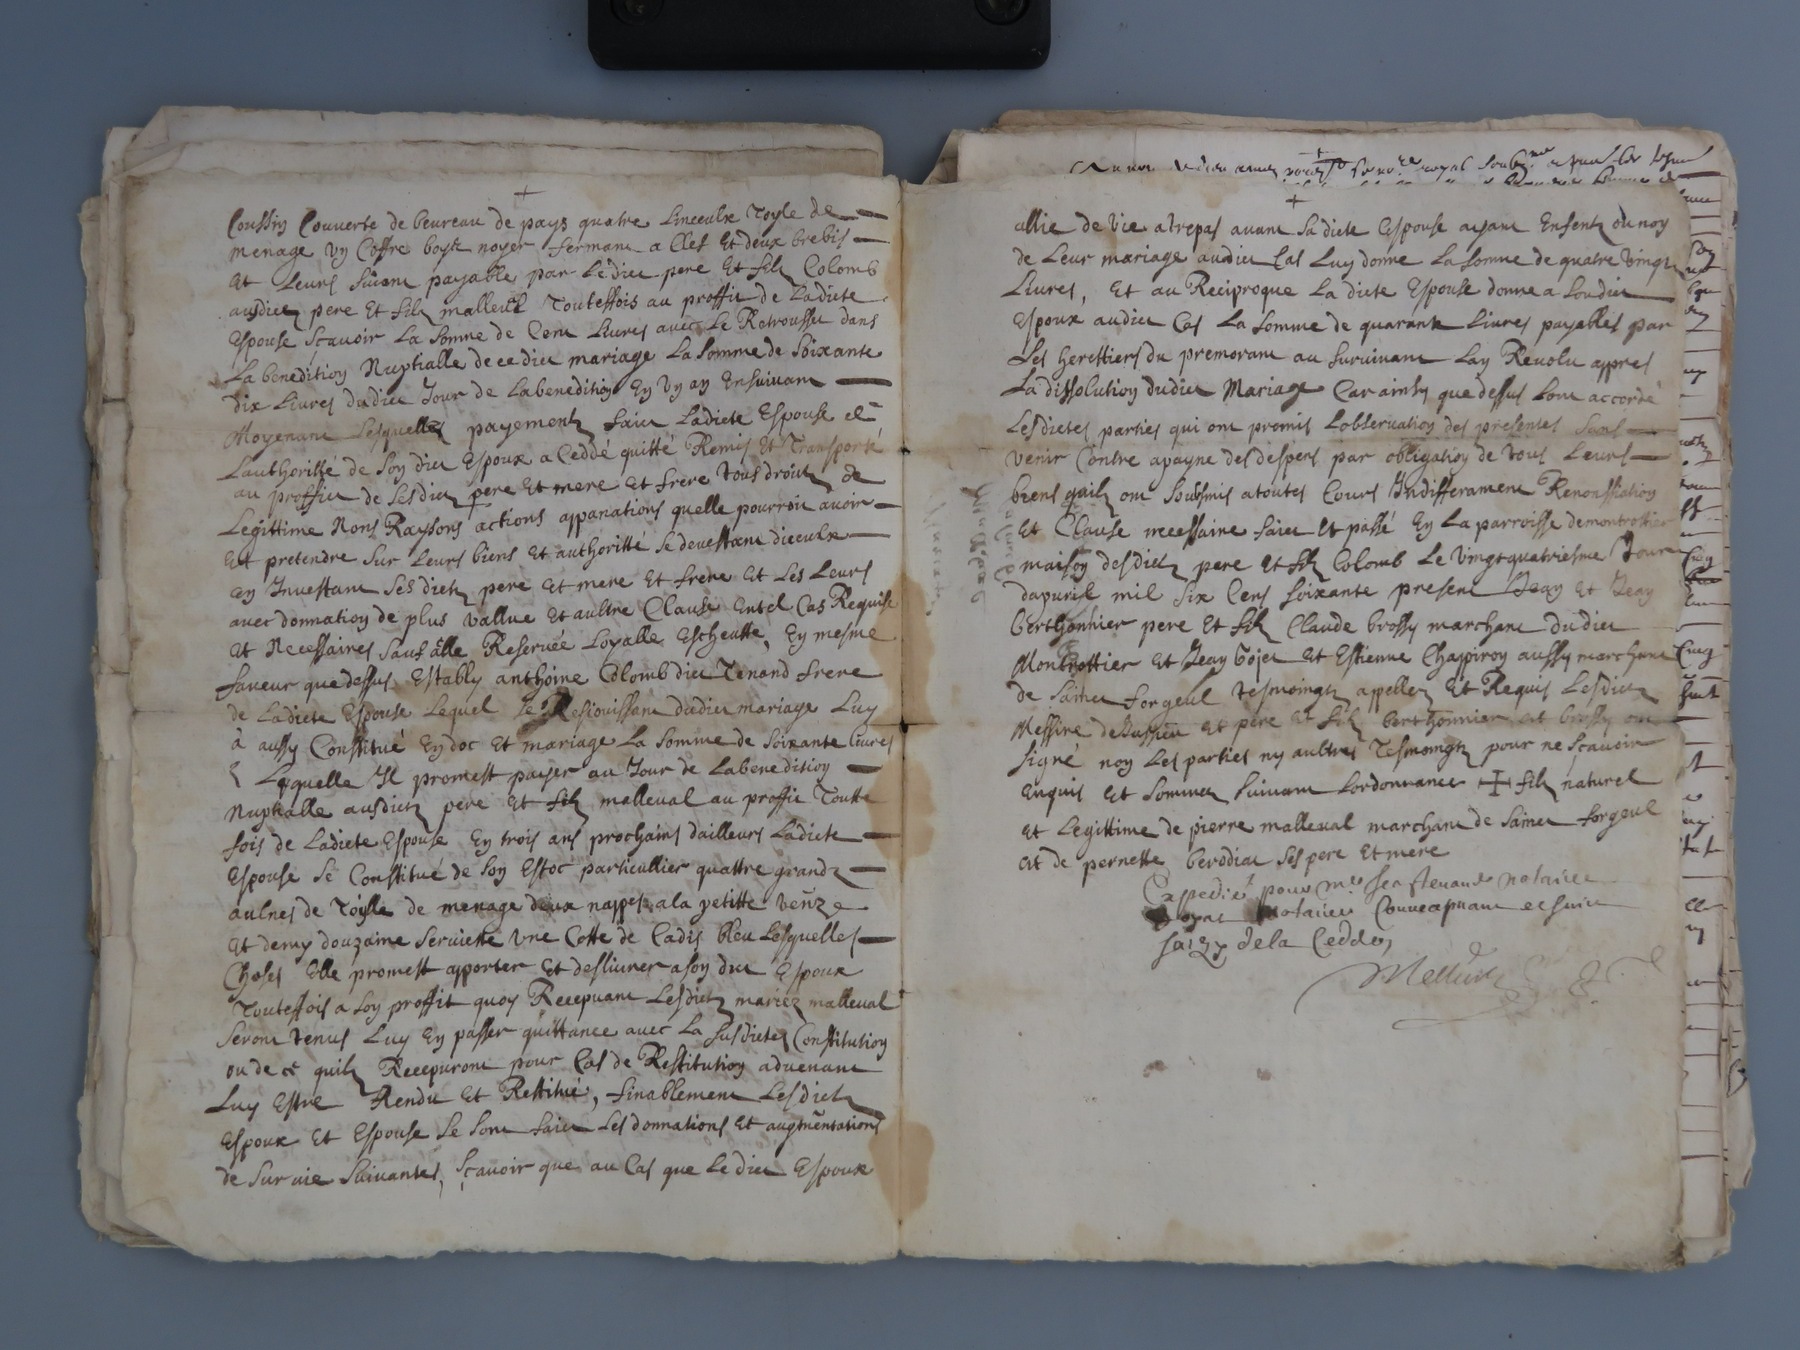 Coussin Couverte de beureau de pays quatre Linceulx Toyle de
menage un Coffre boys noyer fermant a Clef Et deux brebis
Et Leurs suivant payable par Ledict pere Et filz Colomb
ausdictz pere Et filz malleval Touteffois au proffict de Ladicte
Espouse sçavoir La somme de Cent Livres avec Le Retroussu dans
La beneditioy Nuptialle de ce dict mariage La somme de Soixante
dix Livres dudict Jour de Labeneditioy Ey Vy ay Ensuivant
Moyenant Lesquelles payementz faict Ladicte Espouse de
Lauthoritté de Soy dict Espoux a Ceddé quitté Remis Et Transporté
au proffict de Sesdictz pere Et mere et frere Tous droictz de
Legittime Noms Raysons actions appanations quelle pourroit avoir
Et pretendre sur Leurs biens Et authoritté se devestant diceulx
ey Investant Ses dictz pere et mere Et frere Et Les Leurs
avec donnatioy de plus vallue Et aultre Clause Entel Cas Requise
et Necessaires Sauf alle Reservée Loyalle Escheutte, Ey mesme
faveur que dessus Estably anthoine Colomb dict Tenand frere
de Ladicte Espouse Lequel Se Resiouissant dudict mariage Luy
à aussy Constitué Ey doc et mariage La somme de Soixante livres
Laquelle Il promest payer au Jour de Labeneditioy
Nuptialle ausdictz pere Et filz malleval au proffict Toutte
fois de Ladicte Espouse Ey trois ans prochains dailleurs Ladicte
Espouse se Constitué de Soy Estoc particullier quattre grandz
aulnes de Toylle de menage deux nappes ala petitte venize
Et demy douzaine serviette Une Cotte de Cadis bleu Lesquelles
Choses Elle promest apporter Et deslivrer asoy dict Espoux
Touteffois a Soy proffit quoy Recepvant Lesdictz mariez malleval
Seront Tenus Luy Ey passer quittance avec La susdictes Constitutioy
ou de ce quilz Recepvront pour Cas de Restitutioy advenant
Luy Estre Rendu Et Restitué, finablement Lesdictz
Espoux Et Espouse Se Sont faict Les donnations Et augmentations
de Survie Suivantes, sçavoir que au Cas que Ledict Espoux
allie de vie atrepas avant Sadicte Espouse ayant Enfentz ou noy
de Leur mariage audict Cas Luy donne La somme de quatre Vingtz
Livres, Et au Reciproque Ladicte Espouse donne a Soudict
Espoux audict Cas La Somme de quarante Livres payables par
Les Herettiers du premorant au survivant Lay Revolu appres
La dissolutioy dudict Mariage Car ainsy que dessus Lont accordé
Lesdictes parties qui ont promis Lobservatioy des presentes Sans
venir Contre apayne des despens par obligatioy de Tous Leurs
biens quilz ont Soubsmis atoutes Cours Indifferament Renonssiatioy
Et Clause necessaire faict Et passé Ey La parroisse demontrottier
maisoy desdictz pere Et filz Colomb Le Vingtquatriesme Jour
dapvril mil Six Cens soixante present Jeay Et Jeay
berthonnier pere Et filz Claude brossy marchant dudict
Montrottier Et Jeay Gojet Et Estienne Chappiroy aussy marchant
de Sainct forgeul Tesmoingtz appellez Et Requis Lesdictz
Messire et pere Et filz berthonnier et brossy ont
signé noy Les parties ny aultres Tesmoingtz pour ne sçavoir
Enquis Et sommez suivant Lordonnance + filz naturel
Et Legittime de pierre malleval marchant de Sainct forgeul
Et de pernette berodiat Ses pere Et mere
Expedié pour notaire
notaire
de la